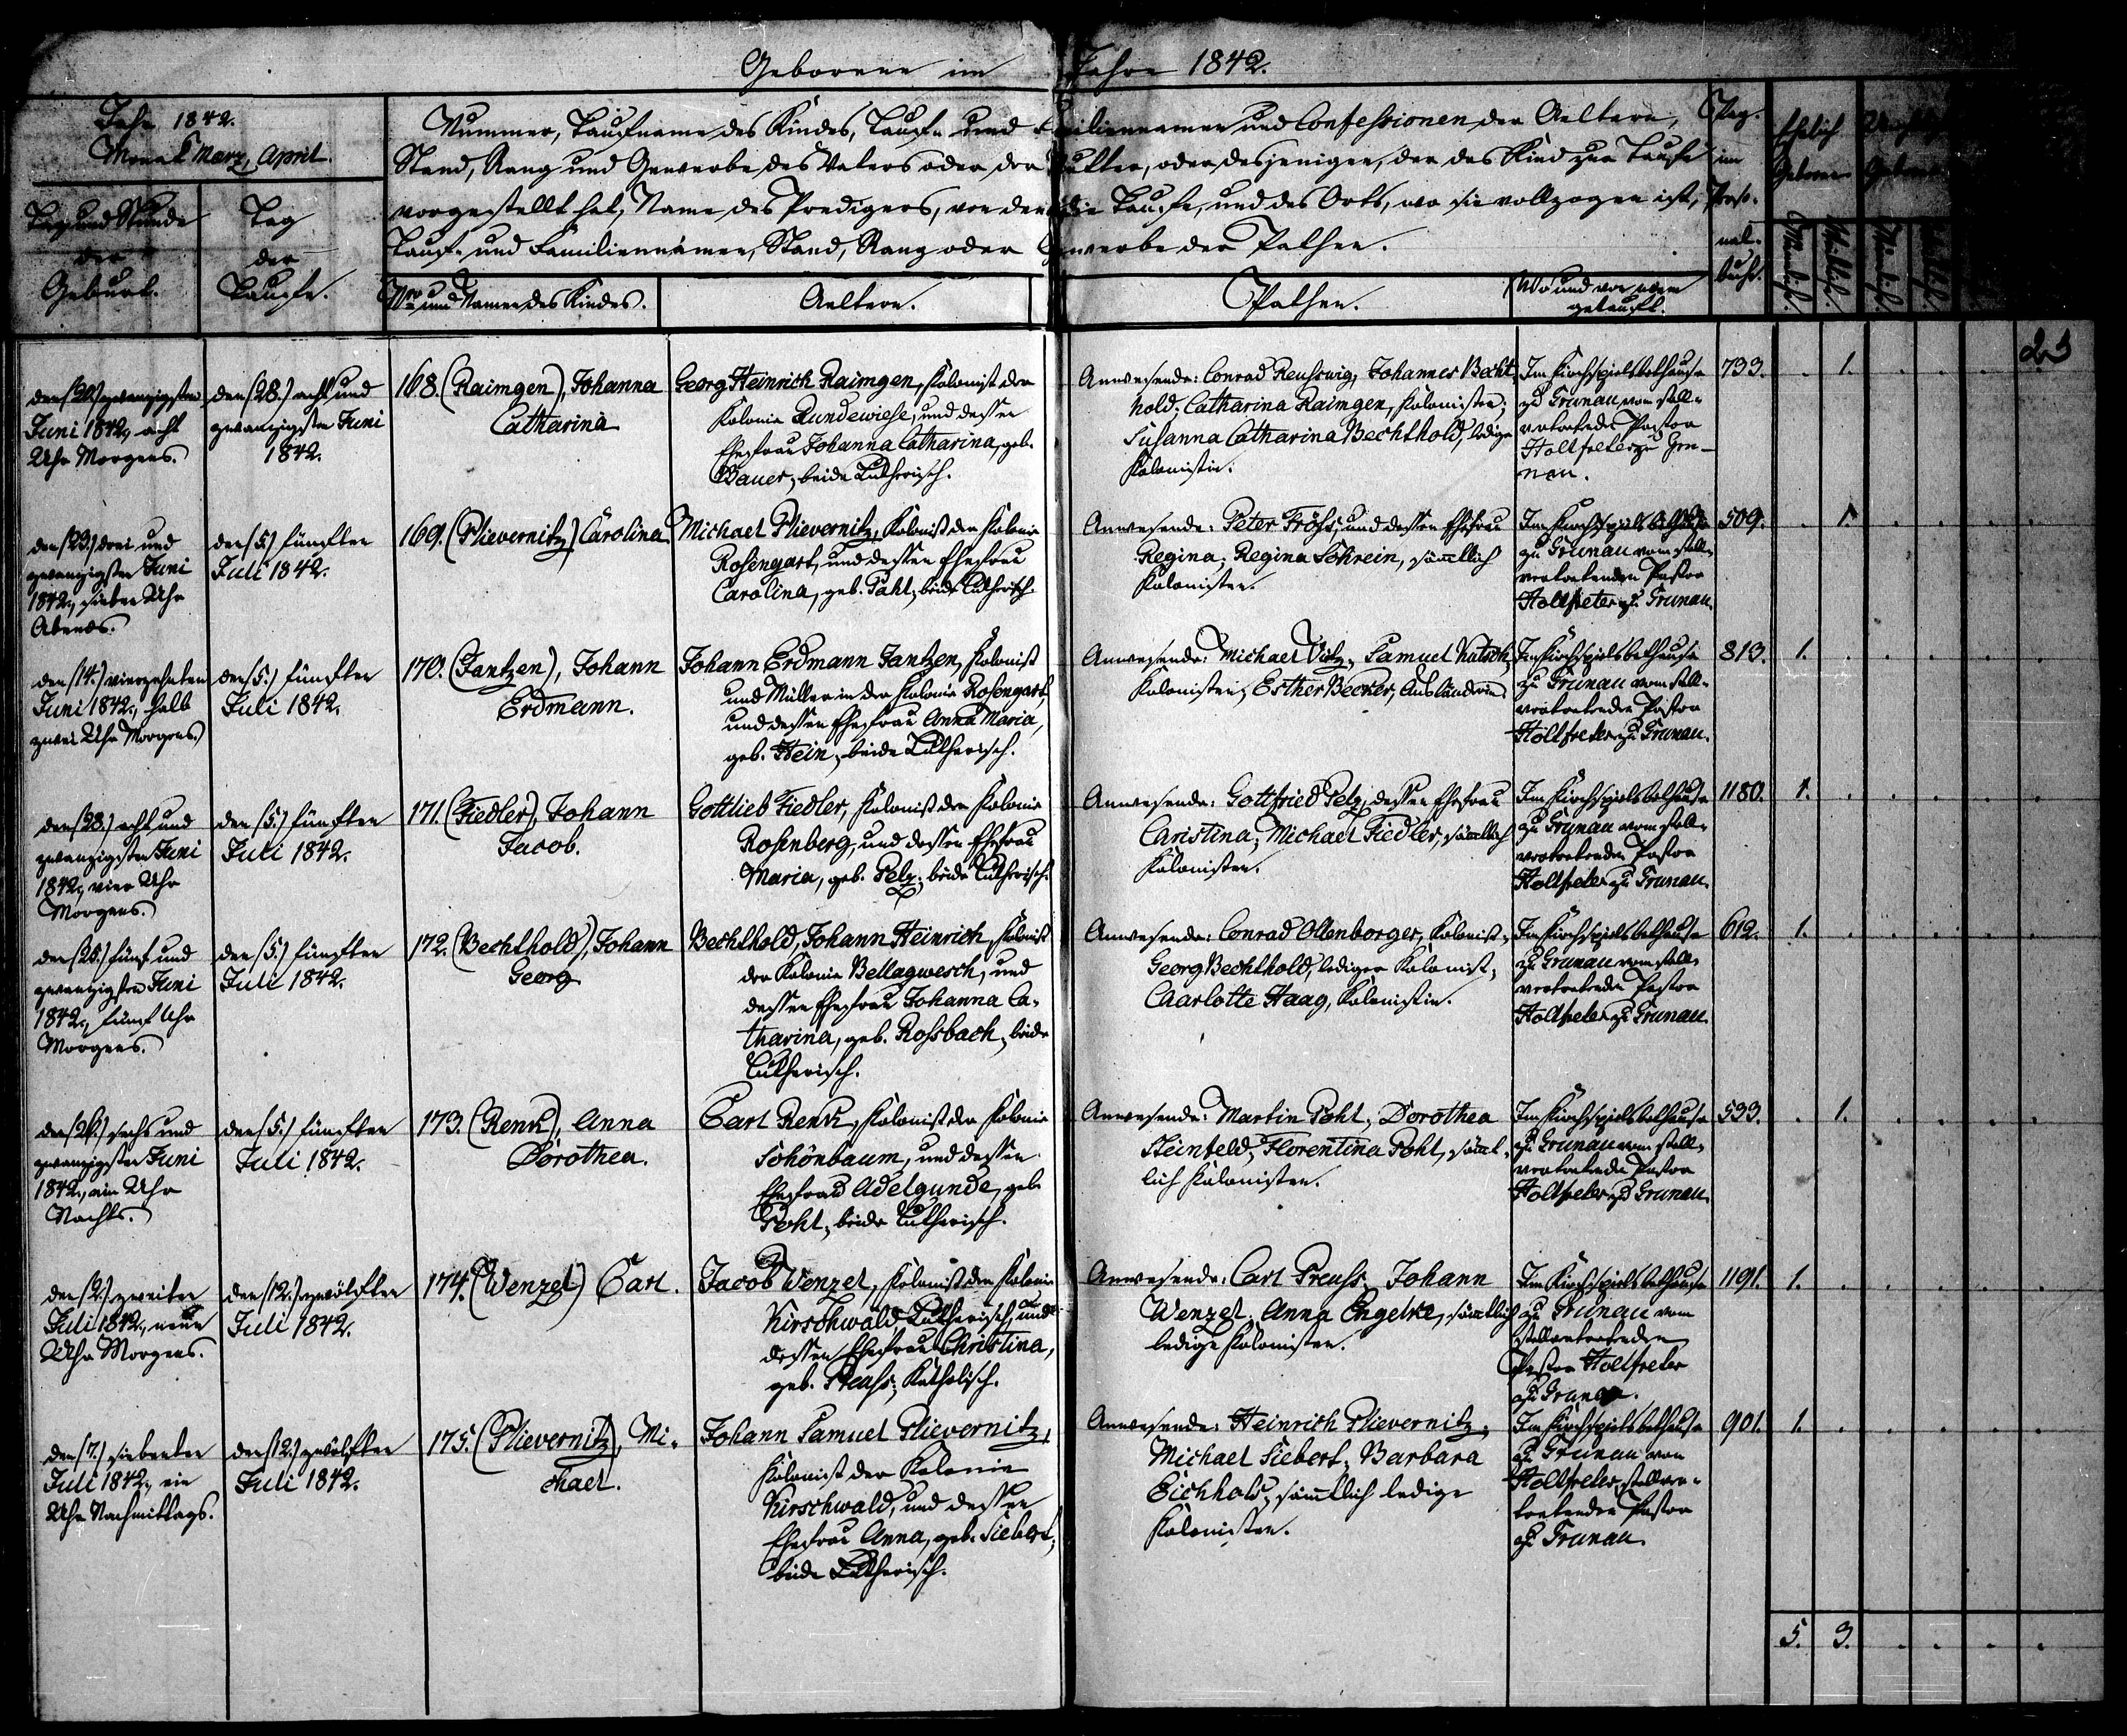 Geborene im Jahre 1842.
Jahr 1842.
Monat März, April.
Tag und Stunde
der
Geburt.
Tag
der
Taufe.
Nummer, Taufname des Kindes, Tauf- und Familiennamen und Confessionen der Aeltern,
Stand, Rang und Gewerbe des Vaters oder der Mutter, oder desjenigen, der das Kind zur Taufe
vorgestellt hat, Name des Predigers, von dem die Taufe, und des Orts, wo sie vollzogen ist,
Tauf- und Familiennamen, Stand, Rang oder Gewerbe der Pathen.
Nro und Namen des Kindes.
Aeltern.
Pathen.
Wo und von wem
getauft.
Pag.
im
Perso-
nal-
buch.
Ehelich
Geboren
Männlich.
Weiblich.
23
den (20.) zwanzigsten
Juni 1842, acht
Uhr Morgens.
den (28.) acht und
zwanzigsten Juni
1842.
168. (Raimgen), Johanna
Catharina
Georg Heinrich Raimgen, Kolonist der
Kolonie Rundewiese, und dessen
Ehefrau Johanna Catharina, geb.
Bauer, beide Lutherisch.
Anwesende: Conrad Reuswig, Johannes Becht
hold; Catharina Raimgen, Kolonisten;
Susanna Catharina Bechthold, ledige
Kolonistin.
Im Kirchspielsbethause
zu Grunau vom stell-
vertretenden Pastor
Holtfreter zu Gru-
nau.
733. . 1. . . . .
den (23.) drei und
zwanzigsten Juni
1842, sieben Uhr
Abends.
den (5.) fünften
Juli 1842.
169. (Plievernitz) Carolina
Michael Plievernitz, Kolonist der Kolonie
Rosengart, und dessen Ehefrau
Carolina, geb. Paht, beide Lutherisch.
Anwesende: Peter Fröhs und dessen Ehefrau
Regina; Regina Söhrein, sämtlich
Kolonisten.
Im Kirchspielsbethause
zu Grunau vom stell-
vertretenden Pastor
Holtfreter zu Grunau.
509. . 1. . . . .
den (14.) vierzehnten
Juni 1842, halb
zwei Uhr Morgens.
den (5.) fünften
Juli 1842.
170. (Jantzen), Johann
Erdmann.
Johann Erdmann Jantzen, Kolonist
und Müller in der Kolonie Rosengart,
und dessen Ehefrau Anna Maria,
geb. Hein, beide Lutherisch.
Anwesende: Michael Vitz, Samuel Kutsch,
Kolonisten; Esther Becker, Ausländerin.
Im Kirchspielsbethause
zu Grunau vom stell-
vertretenden Pastor
Holtfreter zu Grunau.
813. 1. . . . . .
den (28.) acht und
zwanzigsten Juni
1842, vier Uhr
Morgens.
den (5.) fünften
Juli 1842.
171. (Fiedler), Johann
Jacob.
Gottlieb Fiedler, Kolonist der Kolonie
Rosenberg, und dessen Ehefrau
Maria, geb. Pelz; beide Lutherisch.
Anwesende: Gottfried Pelz, dessen Ehefrau
Christina; Michael Fiedler, sämtlich
Kolonisten.
Im Kirchspielsbethause
zu Grunau vom stell-
vertretenden Pastor
Holtfreter zu Grunau.
1180. 1. . . . . .
den (25.) fünf und
zwanzigsten Juni
1842, fünf Uhr
Morgens.
den (5.) fünften
Juli 1842.
172. (Bechthold), Johann
Georg
Bechthold, Johann Heinrich, Kolonist
der Kolonie Bellagwesch, und
dessen Ehefrau Johanna Ca-
tharina, geb. Rossbach, beide
Lutherisch.
Anwesende: Conrad Ollenborger, Kolonist,
Georg Bechthold, lediger Kolonist,
Charlotte Haag, Kolonistin.
Im Kirchspielsbethause
zu Grunau vom stell-
vertretenden Pastor
Holtfreter zu Grunau
612. 1. . . . . .
den (26.) sechs und
zwanzigsten Juni
1842, ein Uhr
Nachts.
den (5.) fünften
Juli 1842.
173. (Renk), Anna
Dorothea.
Carl Renk, Kolonist der Kolonie
Schönbaum, und dessen
Ehefrau Adelgunde, geb.
Poht, beide Lutherisch.
Anwesende: Martin Poht; Dorothea
Steinfeld; Florentina Poht, sämt-
lich Kolonisten.
Im Kirchspielsbethause
zu Grunau vom stell-
vertretenden Pastor
Holtfreter zu Grunau
533. . 1. . . . .
den (2.) zweiten
Juli 1842, neun
Uhr Morgens.
den (12.) zwölften
Juli 1842.
174. (Wenzel) Carl.
Jacob Wenzel, Kolonist der Kolonie
Kirschwald Lutherisch, und
dessen Ehefrau Christina,
geb. Preuss, Katholisch.
Anwesende: Carl Preuss, Johann
Wenzel, Anna Engelke, sämtlich
ledige Kolonisten.
Im Kirchspielsbethause
zu Grunau vom
stellvertretenden
Pastor Holtfreter
zu Grunau.
1191. 1. . . . . .
den (7.) siebenten
Juli 1842, ein
Uhr Nachmittags.
den (12.) zwölften
Juli 1842.
175. (Plievernitz), Mi-
chael.
Johann Samuel Plievernitz,
Kolonist der Kolonie
Kirschwald, und dessen
Ehefrau Anna, geb. Siebert,
beide Lutherisch.
Anwesende: Heinrich Plievernitz,
Michael Siebert, Barbara
Eichholz, sämtlich ledige
Kolonisten.
Im Kirchspielsbethause
zu Grunau von
Holtfreter, stellver-
tretender Pastor
zu Grunau
901. 1. . . . . .
5. 3. . . . .